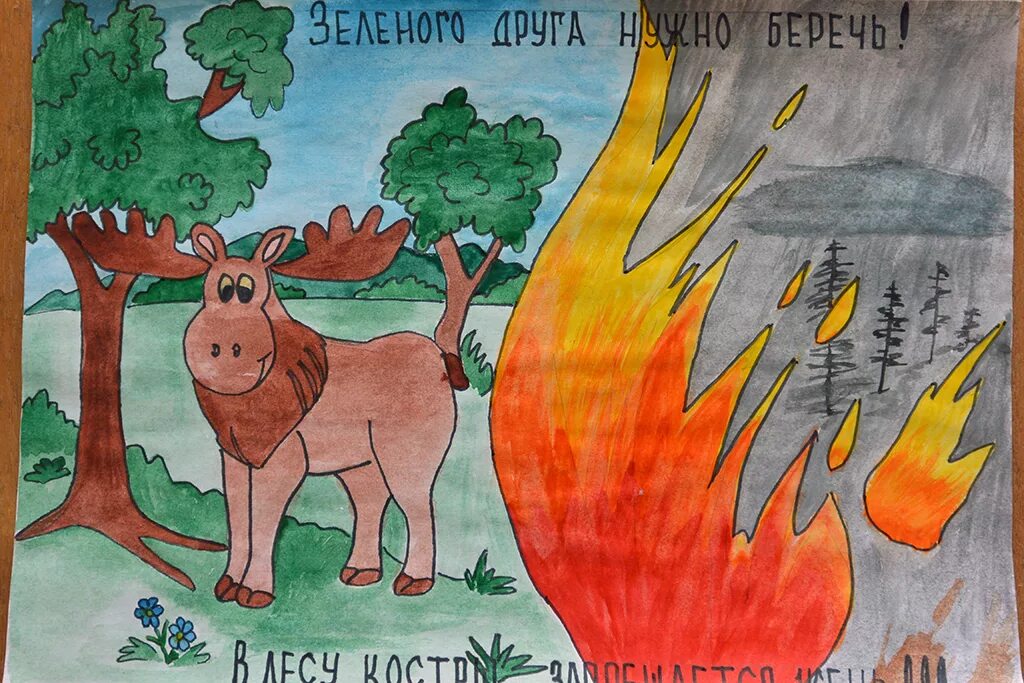 ЗЕЛЕНОГО ДРУГА НУЖНО БЕРЕЧЬ!
В ЛЕСУ КОСТРЫ ЗАПРЕЩАЕТСЯ !!!